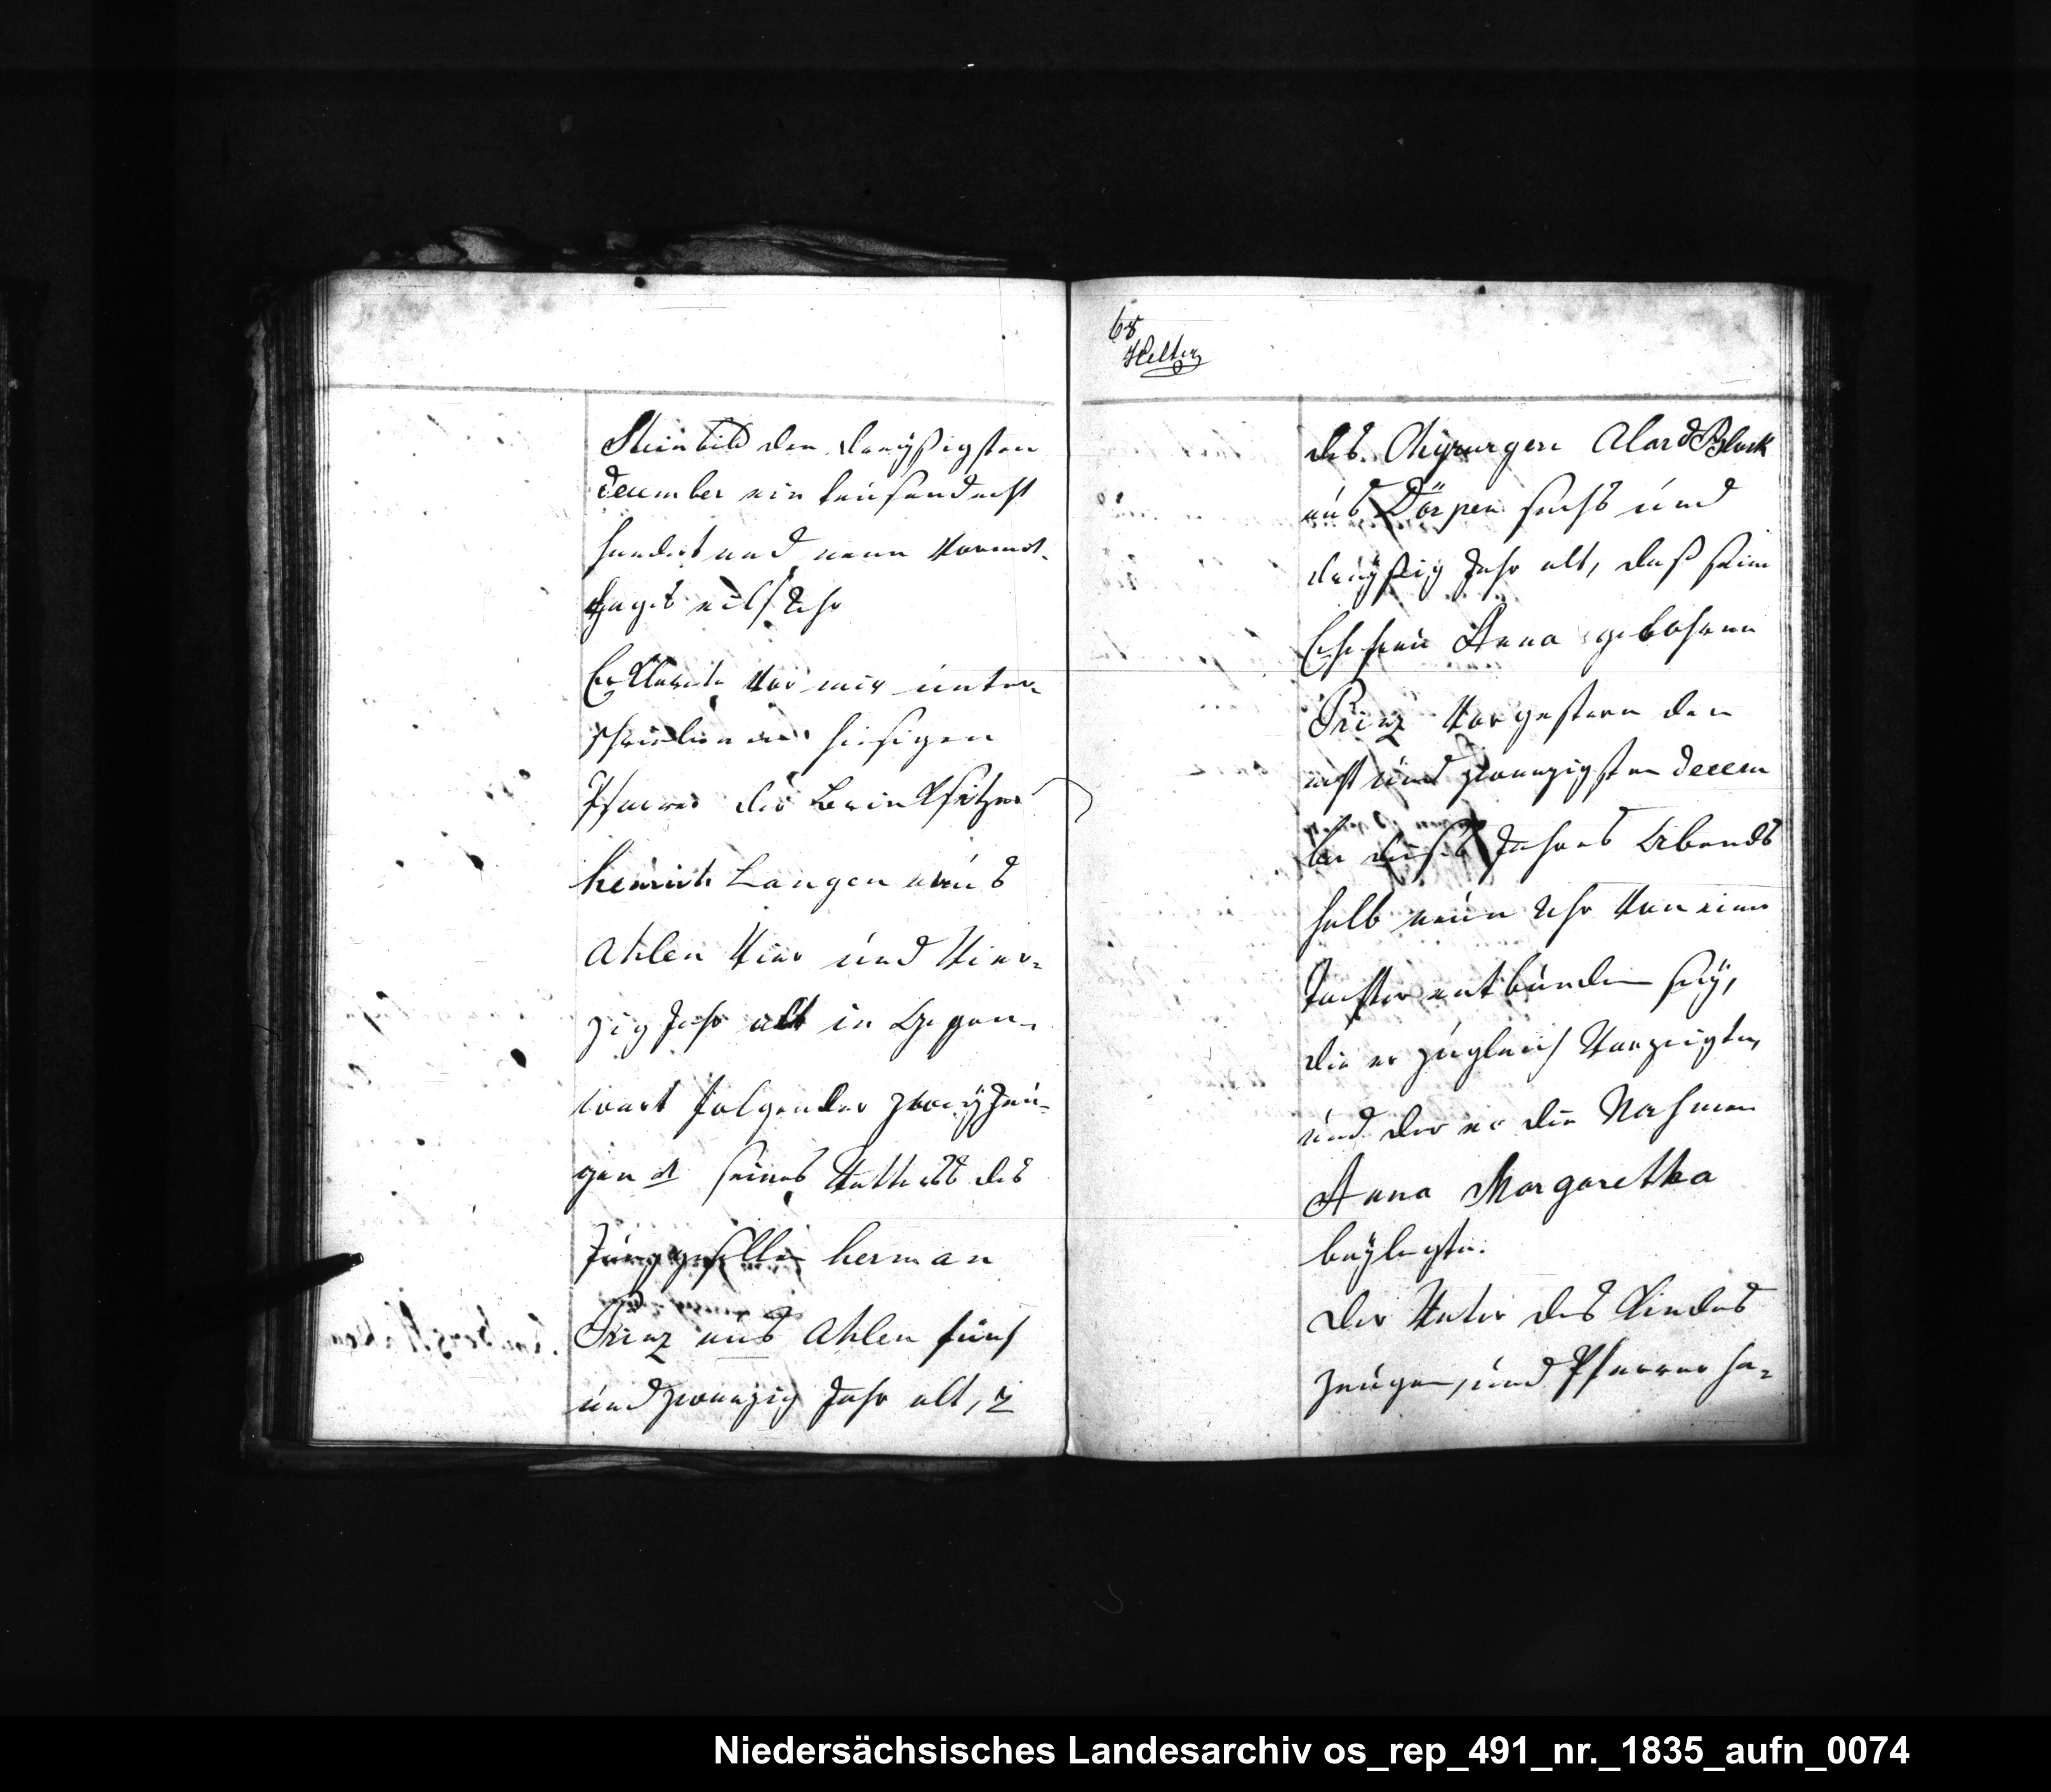 Steinbild den dreyßigsten
december ein tausend acht
hundert und neun Vormit-
tages eilf Uhr
Erklärte vor mir unter-
schriebenen hiesigen
Pfarrer der Brinksitzer
henrich Langen aus
Ahlen Vier und Vier-
zig Jahr alt in Gegen-
wart folgender zwey Zeu-
gen 1 seines Vetters des
Junggesellen herman
Prinz aus Ahlen fünf
und zwanzig Jahr alt, 2
68
des Chyrurgen Alard Block
aus Dörpen sechs und
dreyßig Jahr alt, daß seine
Ehefrau Anna gebohrene
Prinz Vorgestern den
acht und zwanzigsten decem
ber dieses Jahres Abends
halb neun Uhr Von einer
Tochter entbunden sey,
die er zugleich Vorzeigte,
und der er die Nahmen
Anna Margaretha
beylegte.
Der Vater des Kindes
Zeugen, und Pfarrer ha-
Niedersächsisches Landesarchiv os_rep_491_nr._1835_aufn_0074